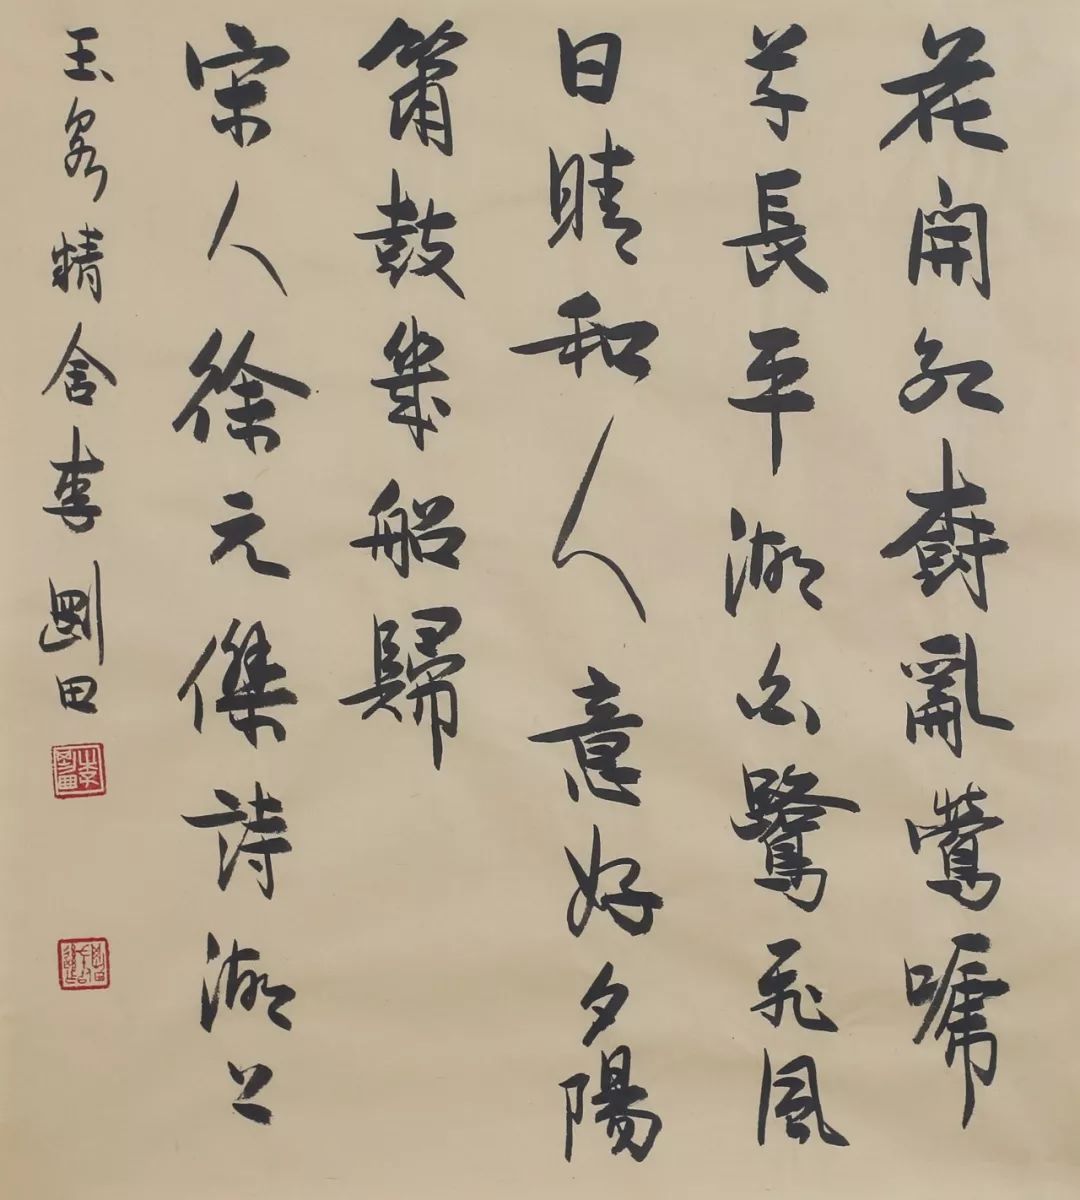 花開紅樹亂鶯嗁
草長平湖白鷺飛風
日晴和人意好夕陽
簫鼓幾船歸
宋人徐元傑詩湖上
玉 精舍李剛田